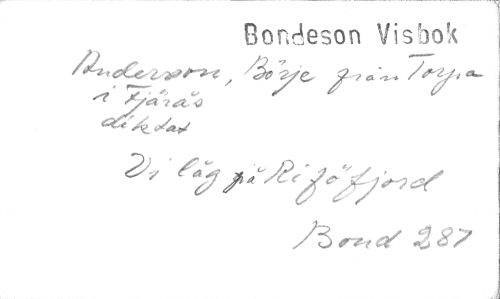 Bondeson Visbok
Anderson, Börje från Torpa
i Fjärås
diktat
Vi låg på Riföfjord
Bond 287